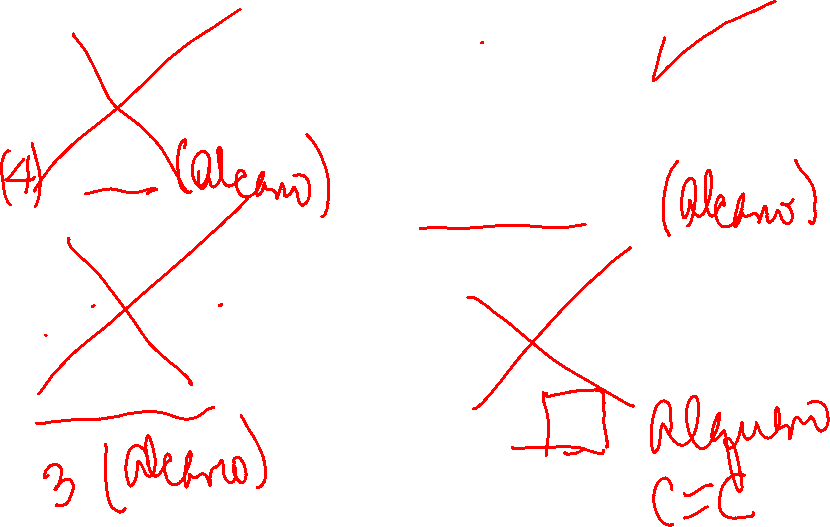 (4) (Alcano)
(Alcano)
3 (Alcano)
Alqueno
C=C